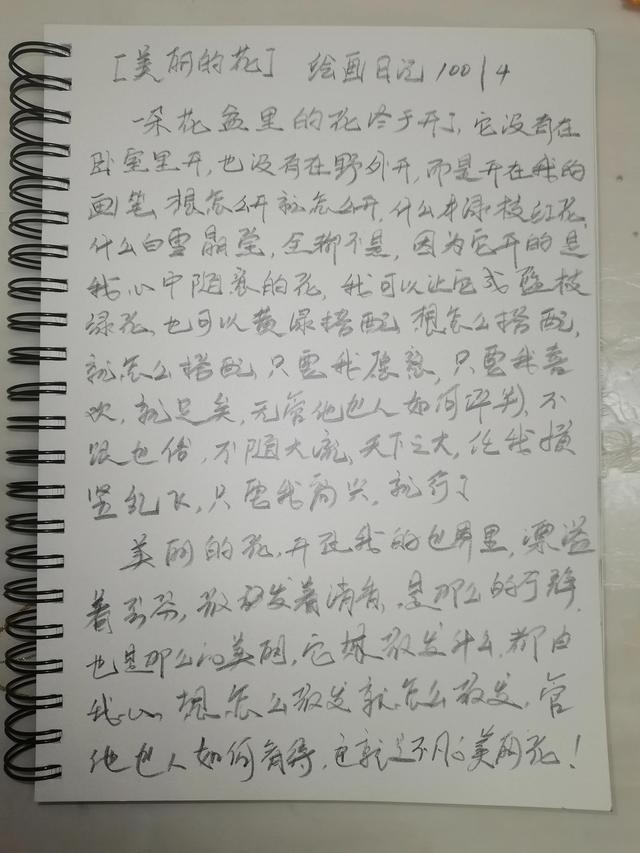 [美丽的花] 绘画日记100/4
一朵花盆里的花终于开了,它没有在
卧室里开,也没有在野外开,而是开在我的
画笔,想怎么开就怎么开,什么绿枝红花,
什么白雪晶莹,全都不是,因为它开的是
我心中随意的花,我可以让它或蓝枝
绿花,也可以黄绿搭配,想怎么搭配,
就怎么搭配,只要我愿意,只要我喜
欢,就足矣,无管他世人如何评判,不
跟世俗,不随大流,天下之大,任我横
竖乱飞,只要我高兴,就行了
美丽的花,开在我的世界里,漂溢
着,散发着清香,是那么的
也是那么的美丽,它散发什么,都由
我心,想怎么散发就怎么散发,管
他世人如何看待,这就是不凡的美丽花!